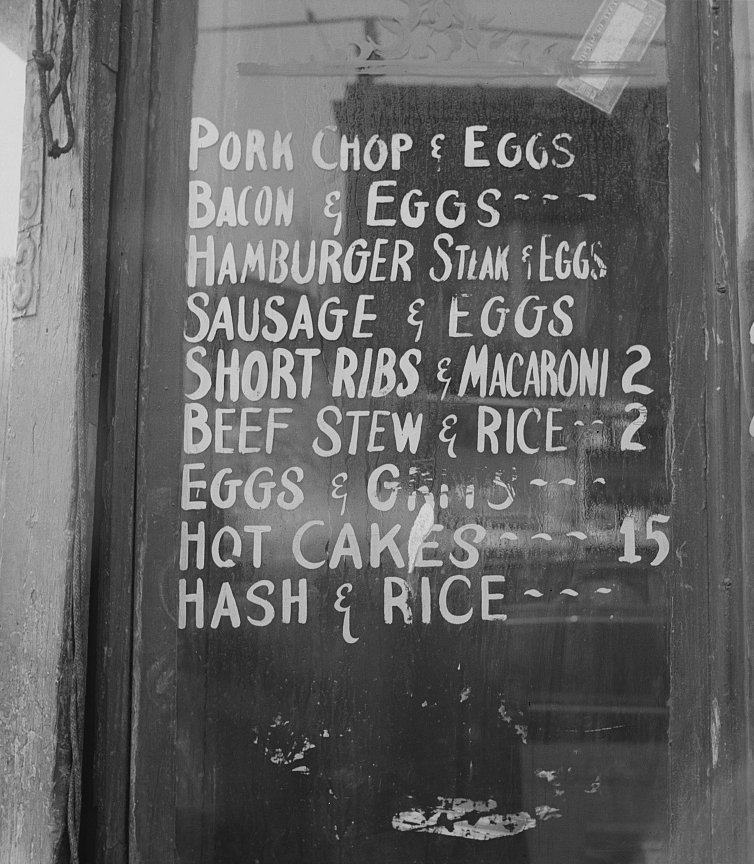 PORK CHOP & EGGS
BACON & EGGS ~ ~ ~
HAMBURGER STEAK & EGGS
SAUSAGE & EGGS
SHORT RIBS & MACARONI 2
BEEF STEW & RICE ~ ~ 2
EGGS & GRITS ~ ~ ~
HOT CAKES ~ ~ ~ ~ 15
HASH & RICE ~ ~ ~